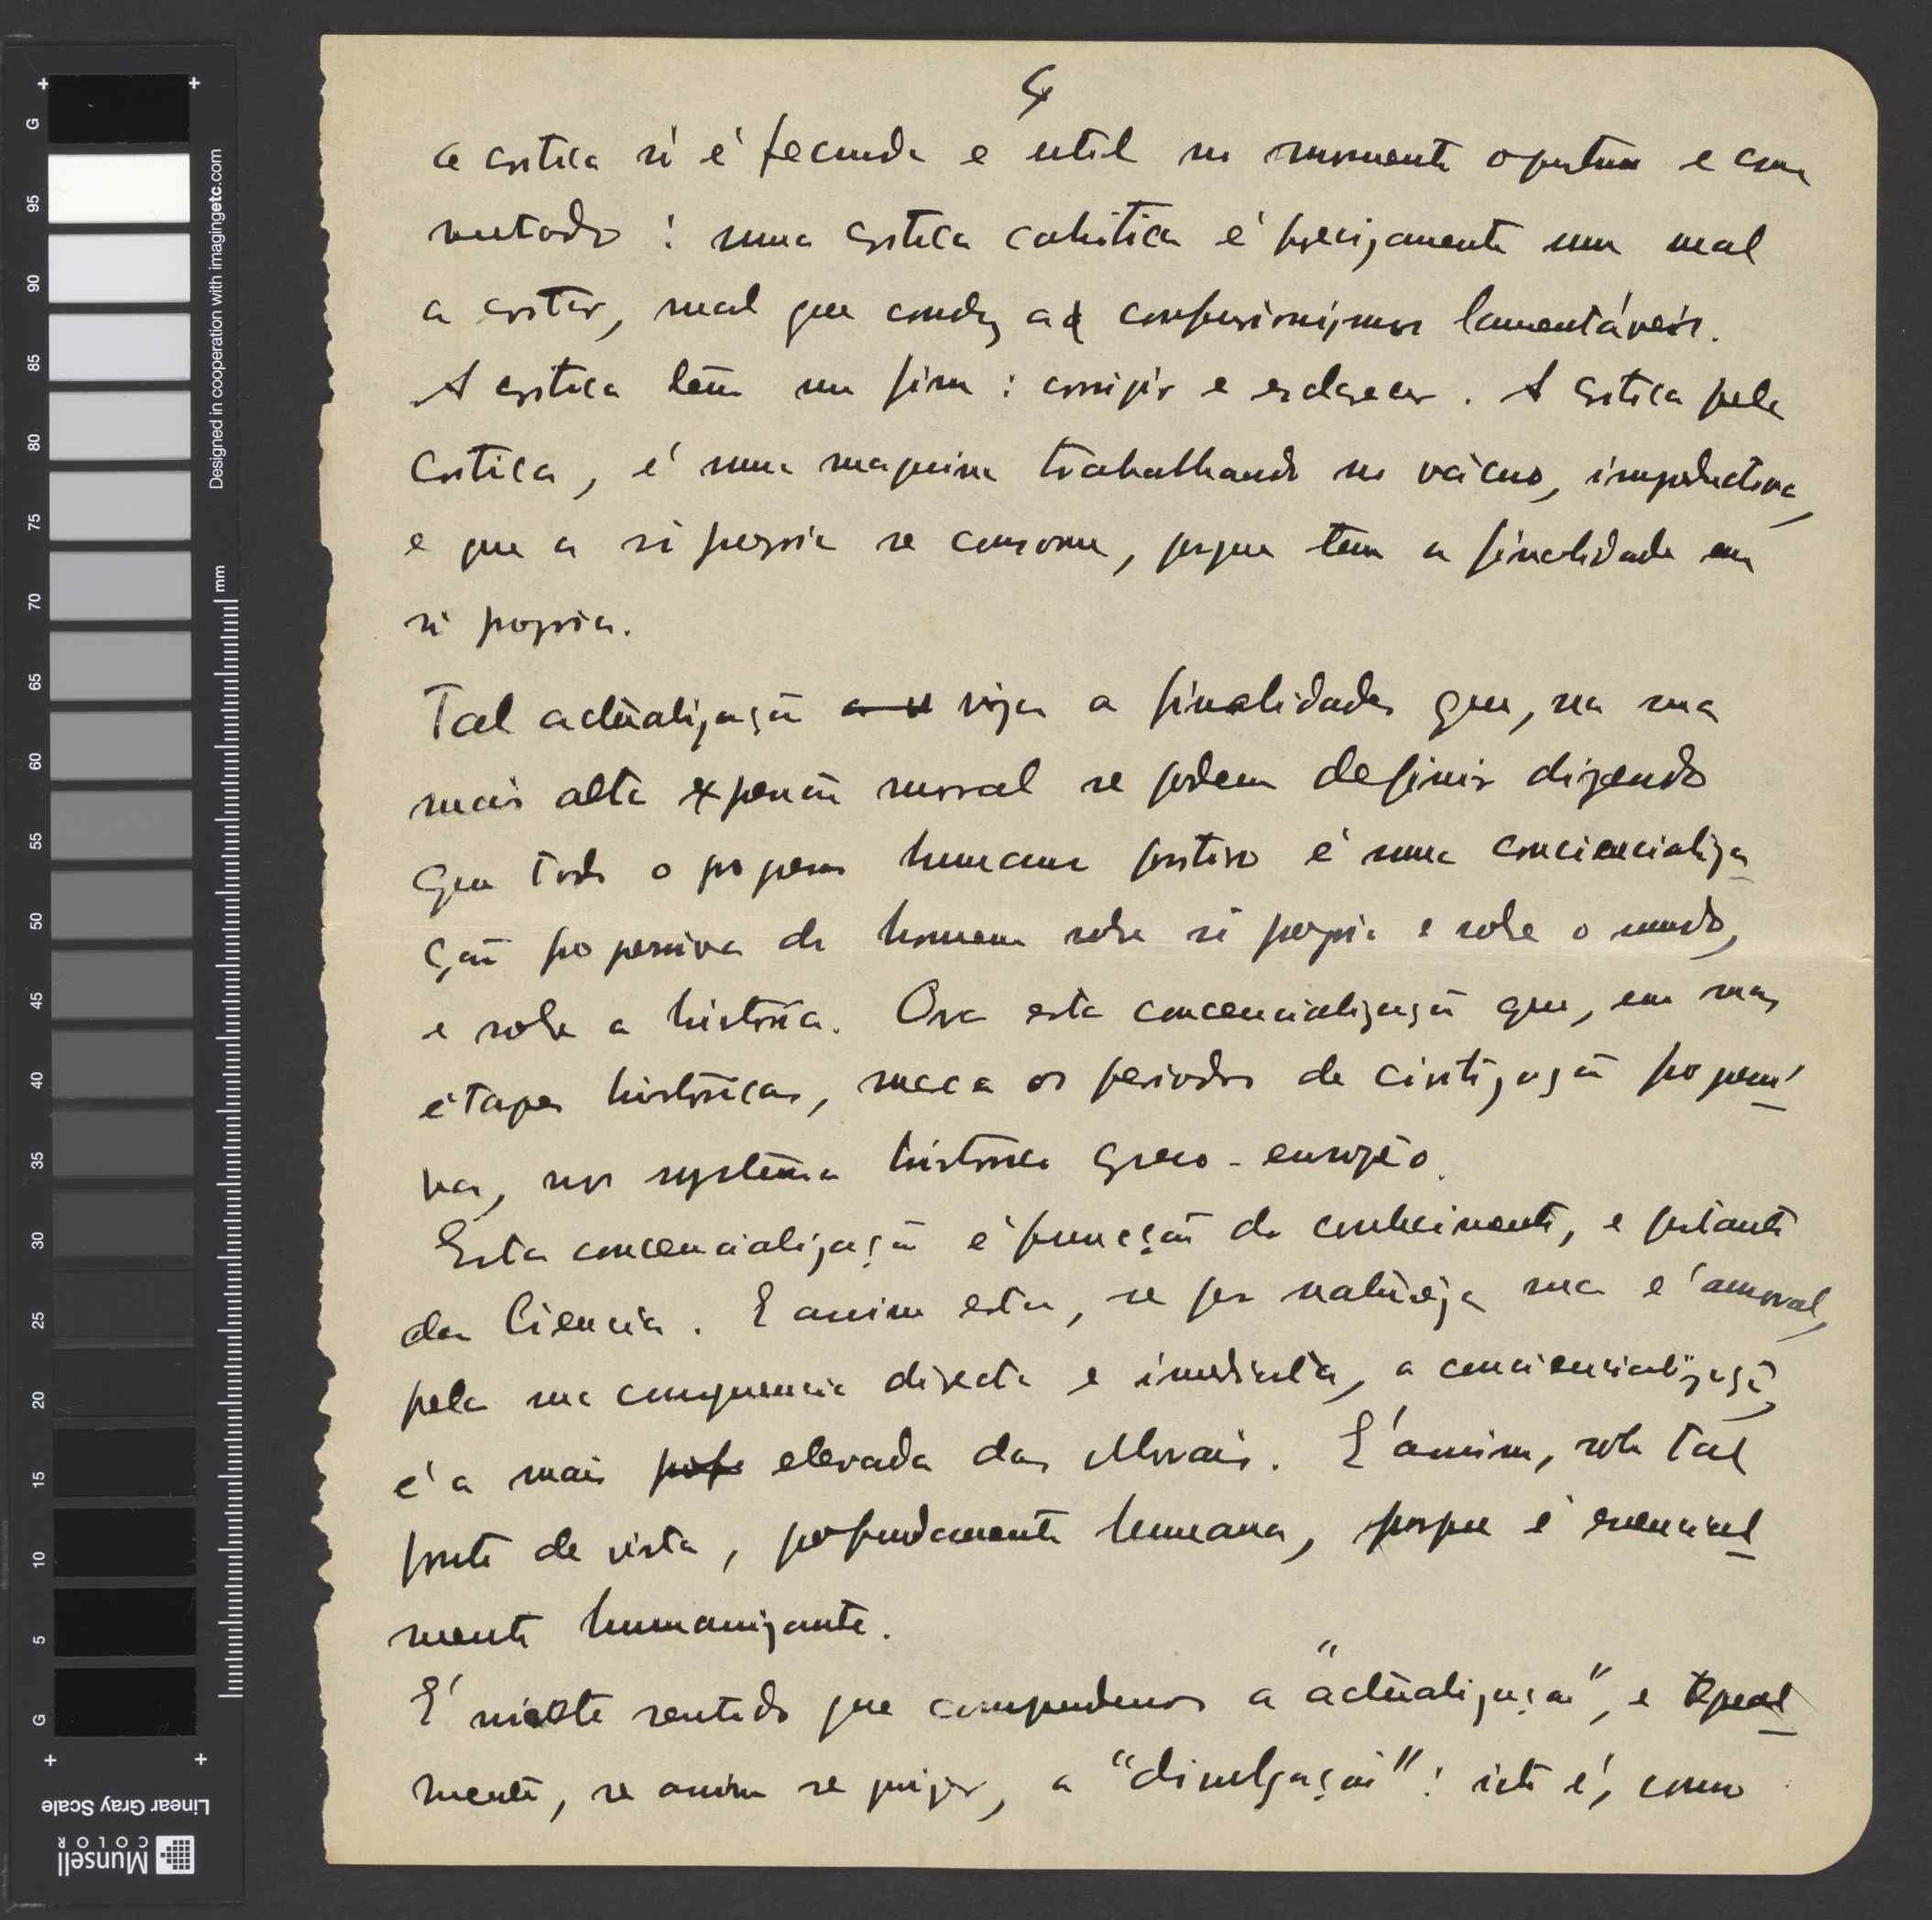 4
a critica só é fecunda e util no momento oportuno e com
metodo: uma critica caótica é precizamente um mal
a evitar, mal que conduz a confusionismos lamentáveis.
A critica tem um fim: corrijir e esclarecer. A critica pela
critica, é uma maquina trabalhando no vácuo, improductiva,
e que a si propria se consome, porque tem a finalidade em
si propria.
Tal actualização viza a finalidades que, na sua
mais alta expressão moral se podem definir dizendo
que todo o progresso humano positivo é uma conciencializa
ção progressiva do homem sobre si proprio e sobre o mundo,
e sobre a história. Ora esta concencialização que, em suas
étapes históricas, marca os periodos de civilização progressi
va, no systema histórico greco-européo.
Esta concencialização é função do conhecimento, e portanto
da Ciencia. E assim esta, se por naturêza sua é amoral,
pela sua consequencia directa e imediata, a conciencialização,
é a mais elevada das Morais. E' assim, sob tal
ponto de vista, profundamente humana, porque é essencial
mente humanizante.
E' neste sentido que compreendemos a "actualização", e egual
mente, se assim se quizer, a "divulgação": isto é, como
Designed in cooperation with imagingetc.com
mm
G
95
90
85
80
75
70
65
60
55
50
45
40
35
30
25
20
15
10
5
G
Linear Gray Scale
Munsell
COLOR